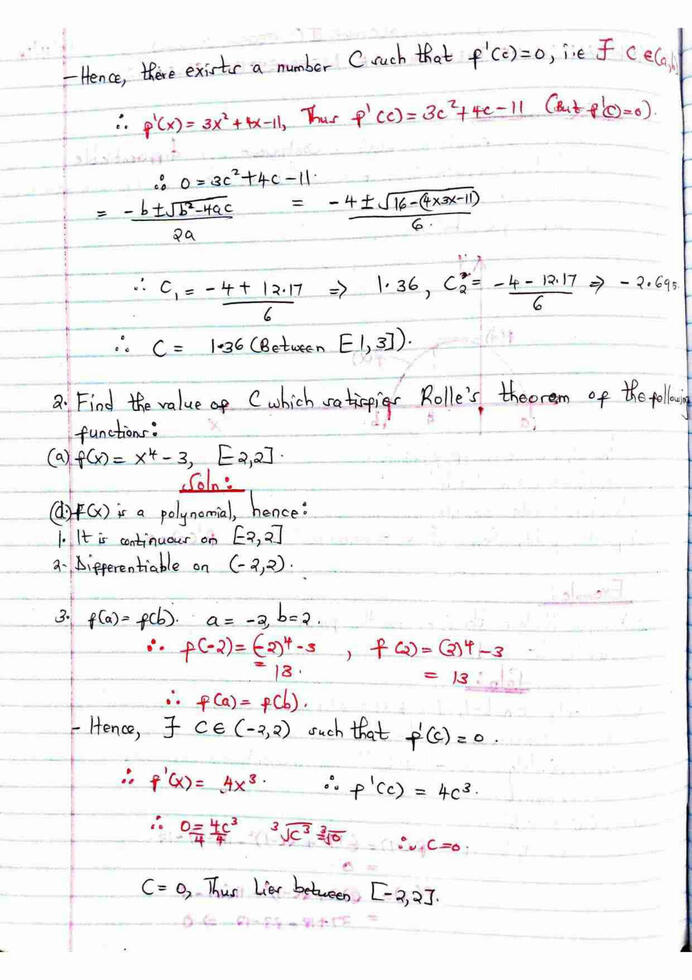 - Hence, there exists a number C such that f'(c)=0, i.e ∃ C ∈(a,b)
∴ f'(x) = 3x²+4x-11, Thus f'(c) = 3c²+4c-11 (But f'(c)=0).
∴ 0 = 3c²+4c-11.
= -b±√b²-4ac / 2a = -4±√16-(4x3x-11) / 6.
∴ C₁ = -4+12.17 / 6 ⇒ 1.36, C₂ = -4-12.17 / 6 ⇒ -2.695
∴ C = 1.36 (Between [1,3]).
2. Find the value of C which satisfies Rolle's theorem of the following
functions:
(a) f(x) = x⁴-3, [-2,2].
Soln:
(a) f(x) is a polynomial, hence:
1. It is continuous on [-2,2]
2- Differentiable on (-2,2).
3. f(a)=f(b). a = -2, b=2.
∴ f(-2) = (-2)⁴-3, f(2) = (2)⁴-3
= 13. = 13.
∴ f(a) = f(b).
- Hence, ∃ C ∈ (-2,2) such that f'(c) = 0.
∴ f'(x) = 4x³. ∴ f'(c) = 4c³.
∴ 0/4 = 4c³/4 ³√c³ = ³√0 ∴ C=0.
C = 0, Thus Lies between [-2,2].